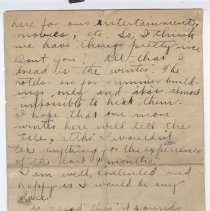 here for our entertainments,
movies, etc. So, I think
we have things pretty nice
Don't you? All that I
dread is the winter. The
hotels are for summer build-
ings only and are almost
impossible to heat them.
I hope that one more
winter here will tell the
tale, tho' I wouldn't
take anything for the experience
of the last 9 months.
I am well, contented and
happy as I would be any
place.
To read this it sounds